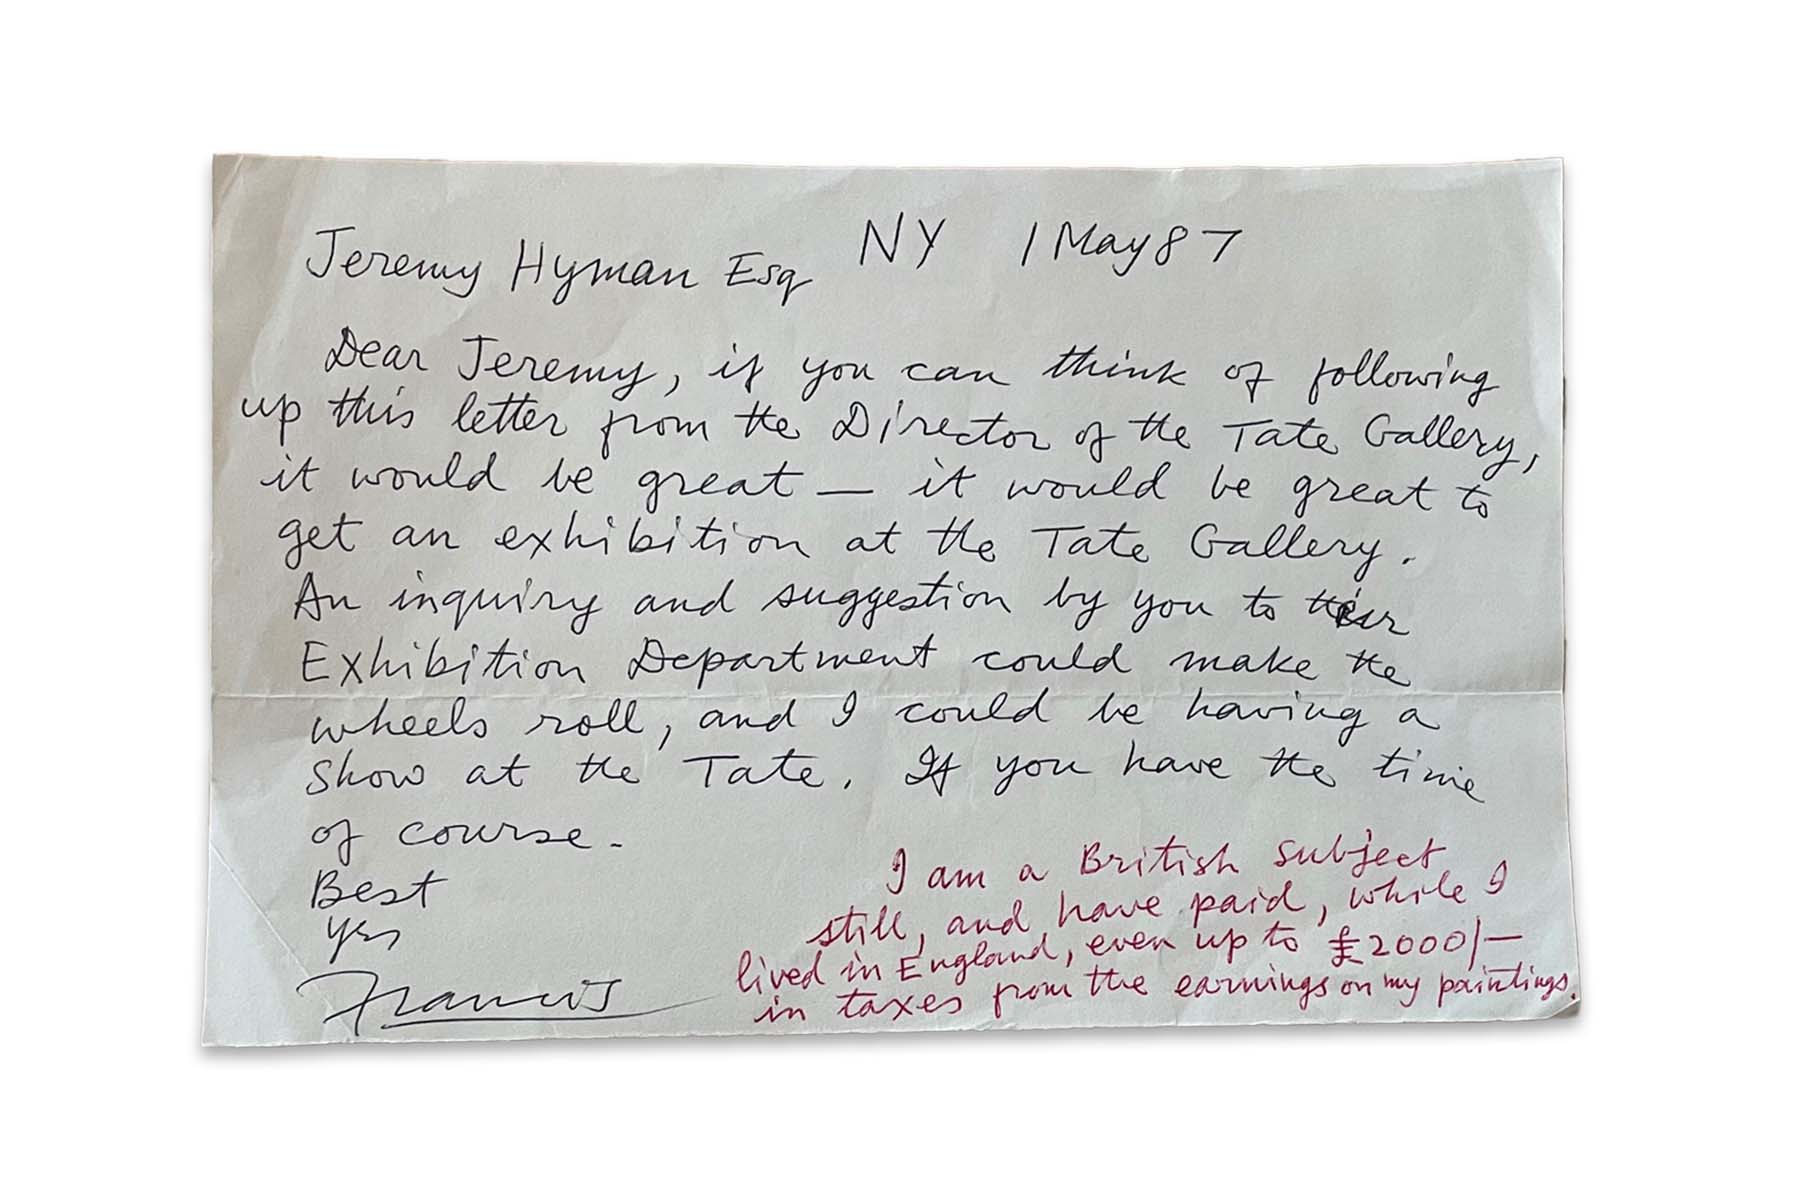 Jeremy Hyman Esq NY 1 May 87
Dear Jeremy, if you can think of following
up this letter from the Director of the Tate Gallery,
it would be great — it would be great to
get an exhibition at the Tate Gallery.
An inquiry and suggestion by you to their
Exhibition Department could make the
wheels roll, and I could be having a
show at the Tate. If you have the time
of course.
Best
yrs
Francis
I am a British subject
still, and have paid, while I
lived in England, even up to £2000/—
in taxes from the earnings on my paintings.